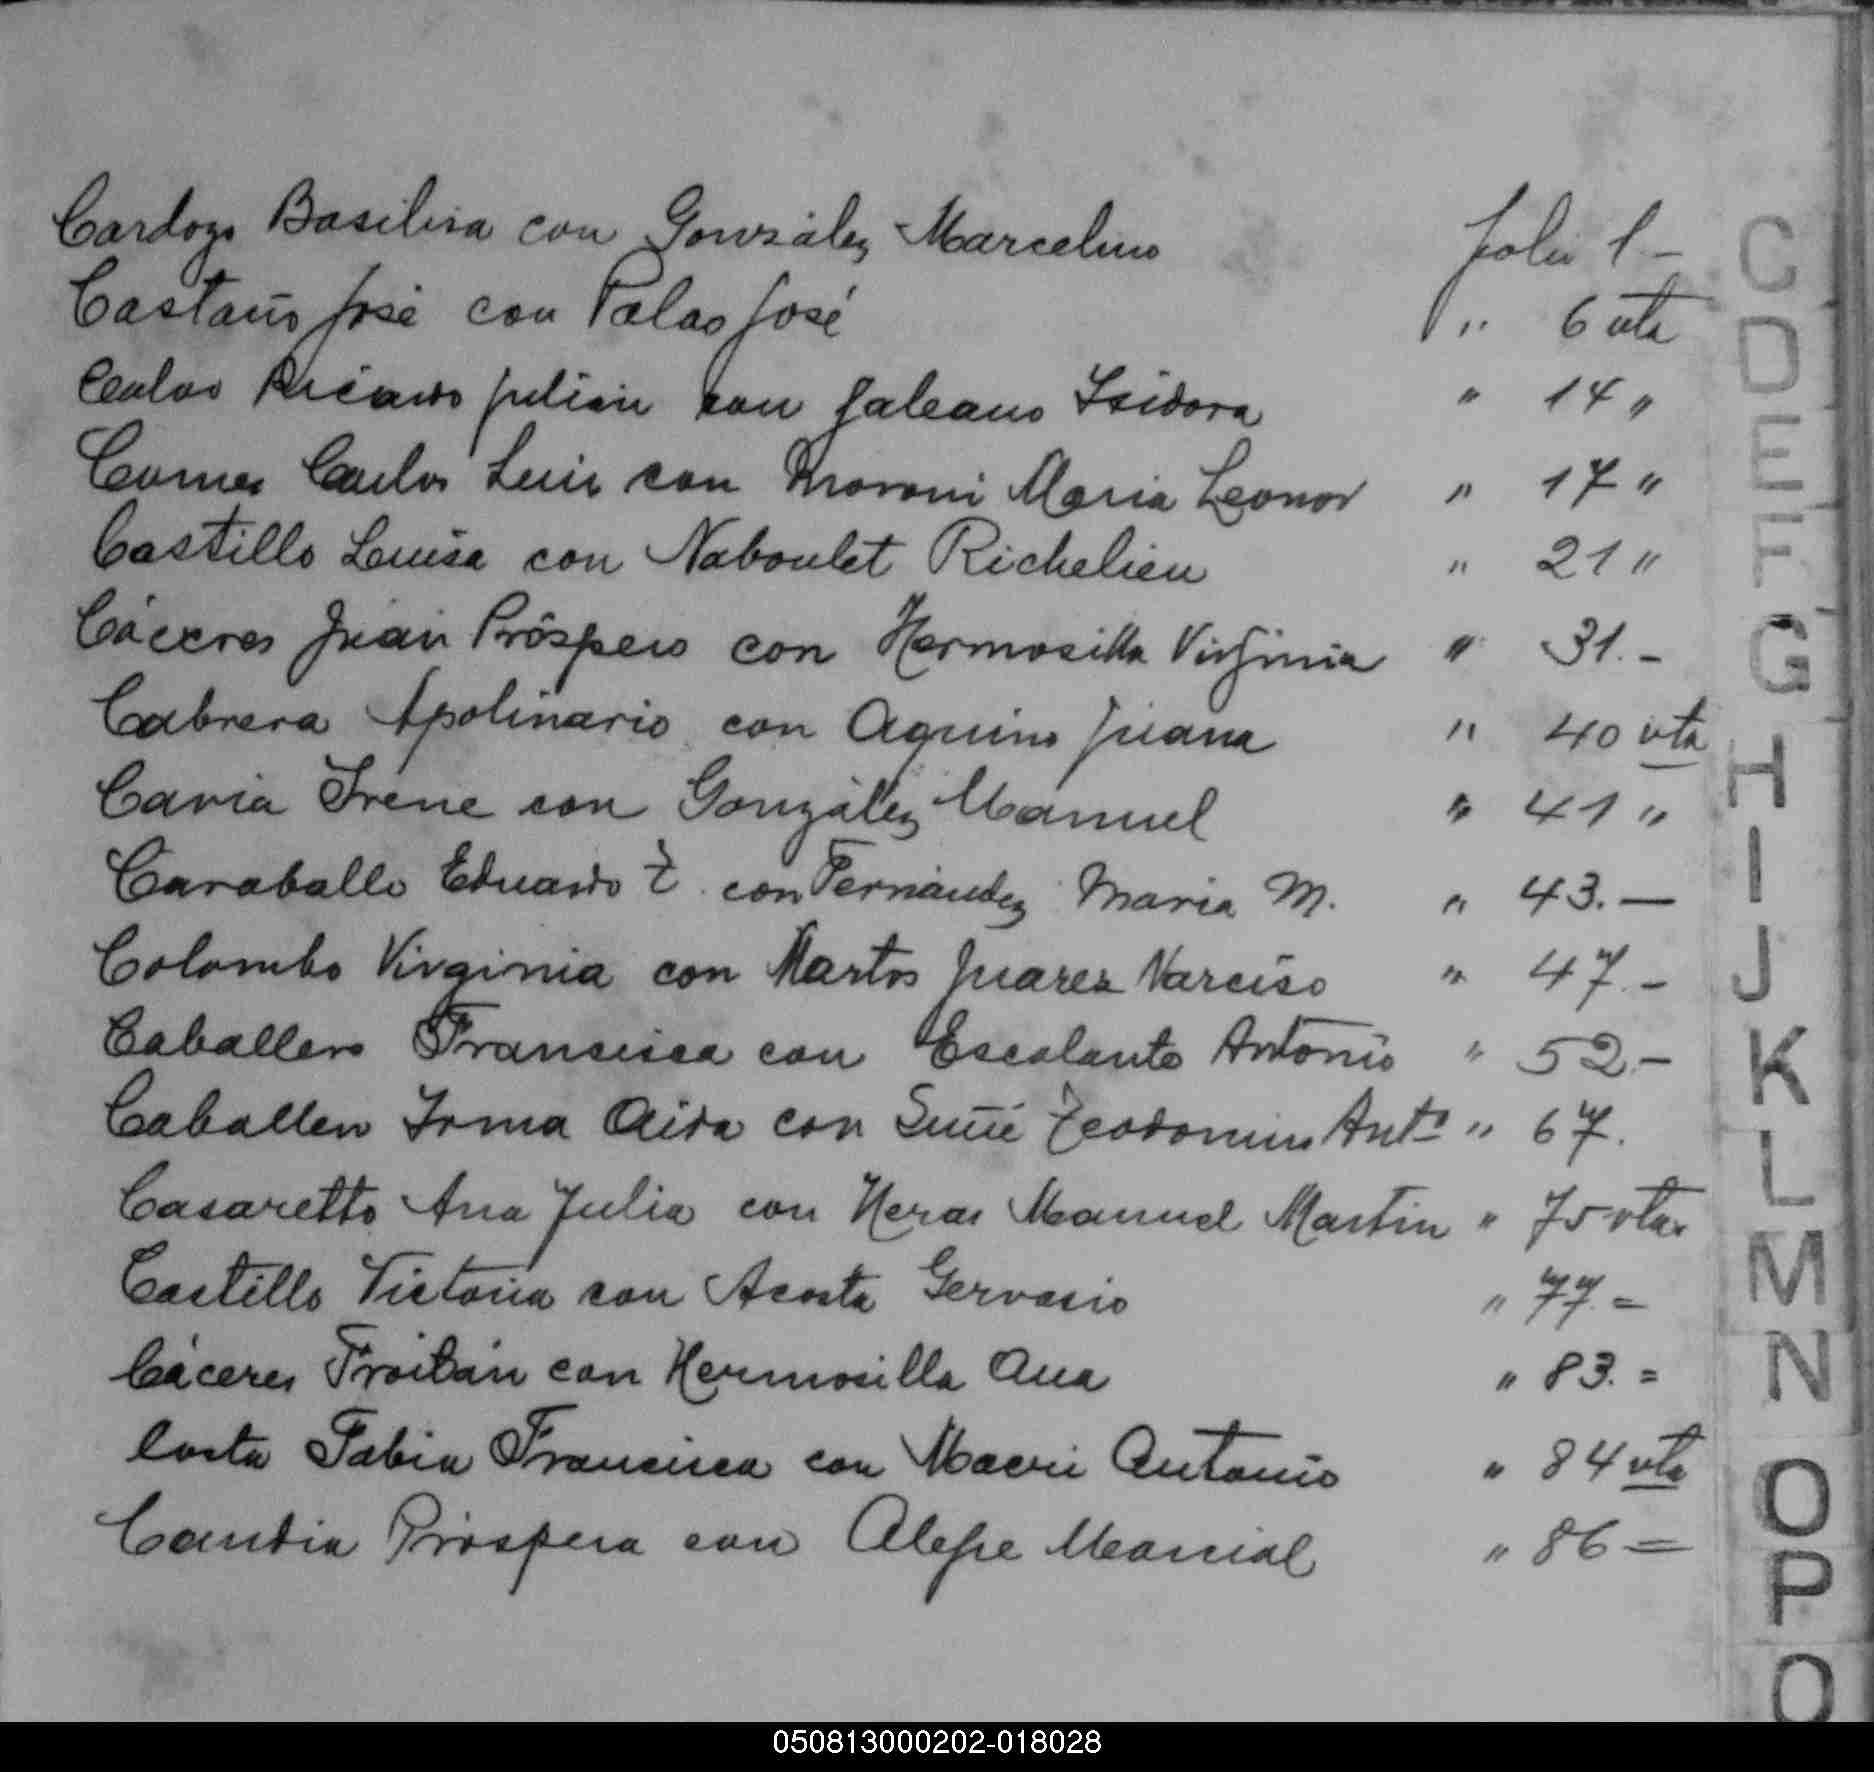 Cardozo Basilisa con González Marcelino folio 1 -
Castaño José con Palao José " 6 vta
Ricardo Julián con Galeano Isidora " 14 "
Comes Carlos Luis con Moroni Maria Leonor " 17 "
Castillo Luisa con Naboulet Richelieu " 21 "
Cáceres Juan Próspero con Hermosilla Virginia " 31.-
Cabrera Apolinario con Aquino Juana " 40 vta
Cavia Irene con González Manuel " 41 "
Caraballo Eduardo con Fernández Maria M. " 43.-
Colombo Virginia con Martos Juarez Narciso " 47.-
Caballero Francisca con Escalante Antonio " 52.-
Caballero Irma Aida con Ant° " 67.
Casaretto Ana Julia con Heras Manuel Martin " 75 vta
Castillo Victoria con Acosta Gervasio " 77.=
Cáceres Froilán con Hermosilla Ana " 83.=
Costa Fabia Francisca con Macri Antonio " 84 vta
Candia Próspera con Alepe Marcial " 86 =
C
D
E
F
G
H
I
J
K
L
M
N
O
P
050813000202-018028